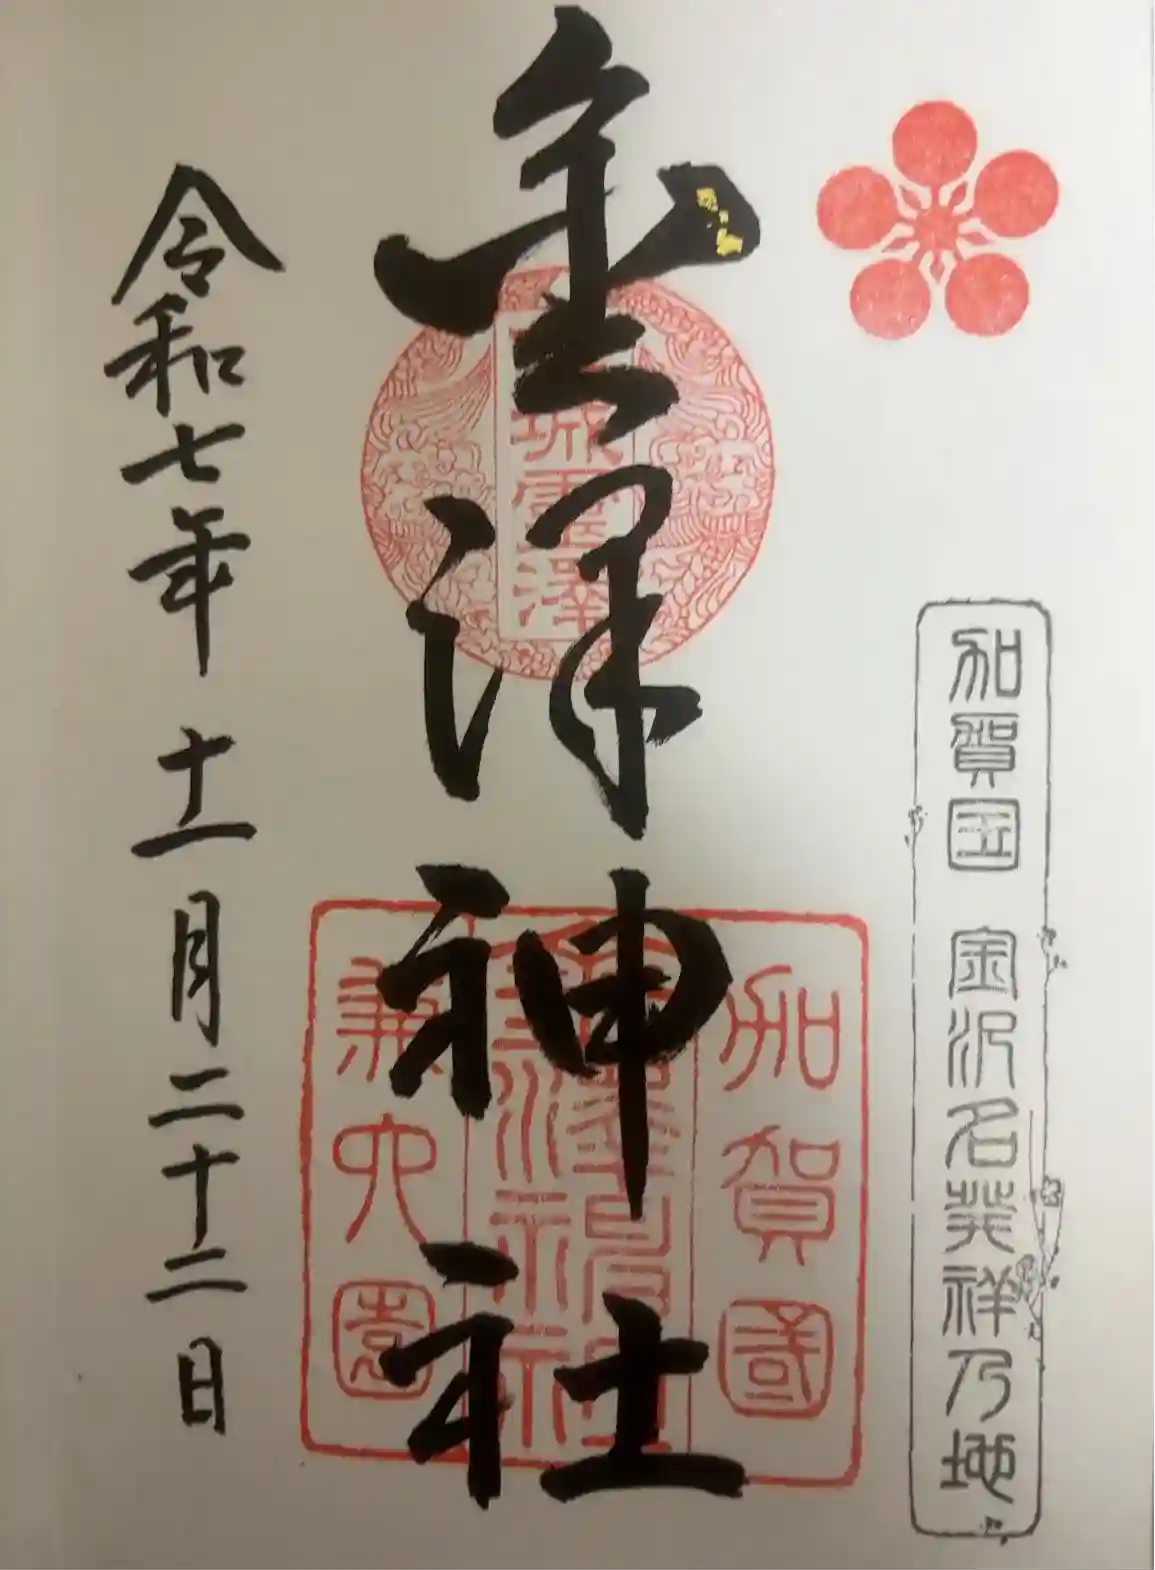 加賀国 金沢名発祥乃地
金澤神社
城霊澤
加賀國
兼六園
令和七年 十一月二十二日